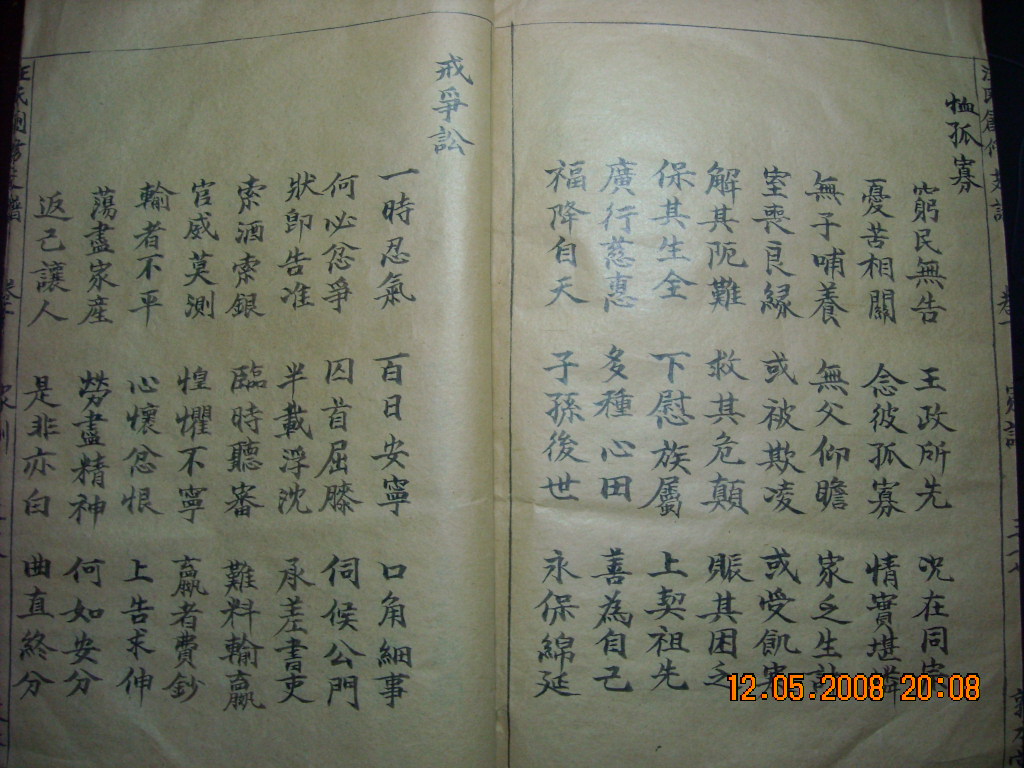 恤孤寡
窮民無告 王政所先 况在同
憂苦相關 念彼孤寡 情實堪憐
無子哺養 無父仰瞻 家乏生
室喪良緣 或被欺凌 或受飢寒
解其阨難 救其危顛 賑其困乏
保其生全 下慰族屬 上契祖先
廣行慈惠 多種心田 善為自己
福降自天 子孫後世 永保綿延
戒爭訟
一時忍氣 百日安寧 口角細事
何必忿爭 囚首屈膝 伺候公門
狀卽告准 半載浮沈 承差書吏
索酒索銀 臨時聽審 難料輸贏
官威莫測 惶懼不寧 贏者費鈔
輸者不平 心懷忿恨 上告求伸
蕩盡家産 勞盡精神 何如安分
返己讓人 是非亦白 曲直終分
12.05.2008 20:08